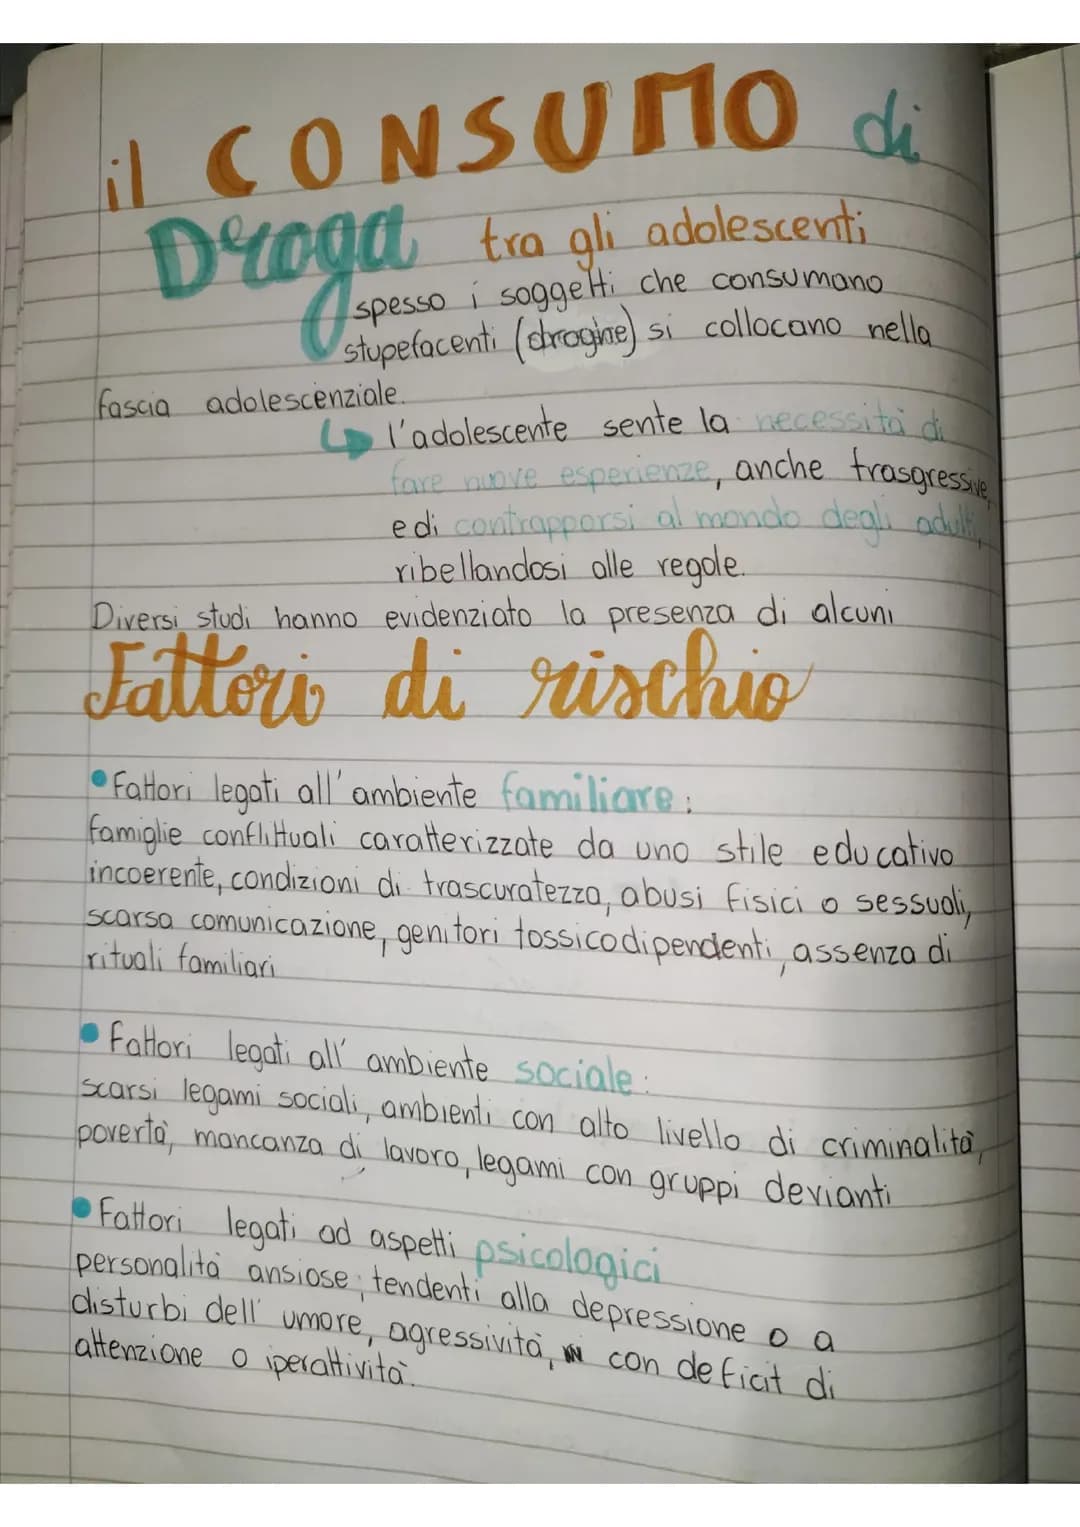 il CONSUMO di
Droga tra gli adolescenti
spesso i soggetti che consumano
stupefacenti (droghe) si collocano nella
fascia adolescenziale.
↳ l'adolescente sente la necessità di
fare nuove esperienze, anche trasgressive,
e di contrapporsi al mondo degli adulti,
ribellandosi alle regole.
Diversi studi hanno evidenziato la presenza di alcuni
Fattori di rischio
• Fattori legati all'ambiente familiare:
famiglie conflittuali caratterizzate da uno stile educativo
incoerente, condizioni di trascuratezza, abusi fisici o sessuali,
scarsa comunicazione, genitori tossicodipendenti, assenza di
rituali familiari
• Fattori legati all'ambiente sociale:
scarsi legami sociali, ambienti con alto livello di criminalità,
povertà, mancanza di lavoro, legami con gruppi devianti
• Fattori legati ad aspetti psicologici
personalità ansiose, tendenti alla depressione o a
disturbi dell'umore, agressività, con deficit di
attenzione o iperattività.